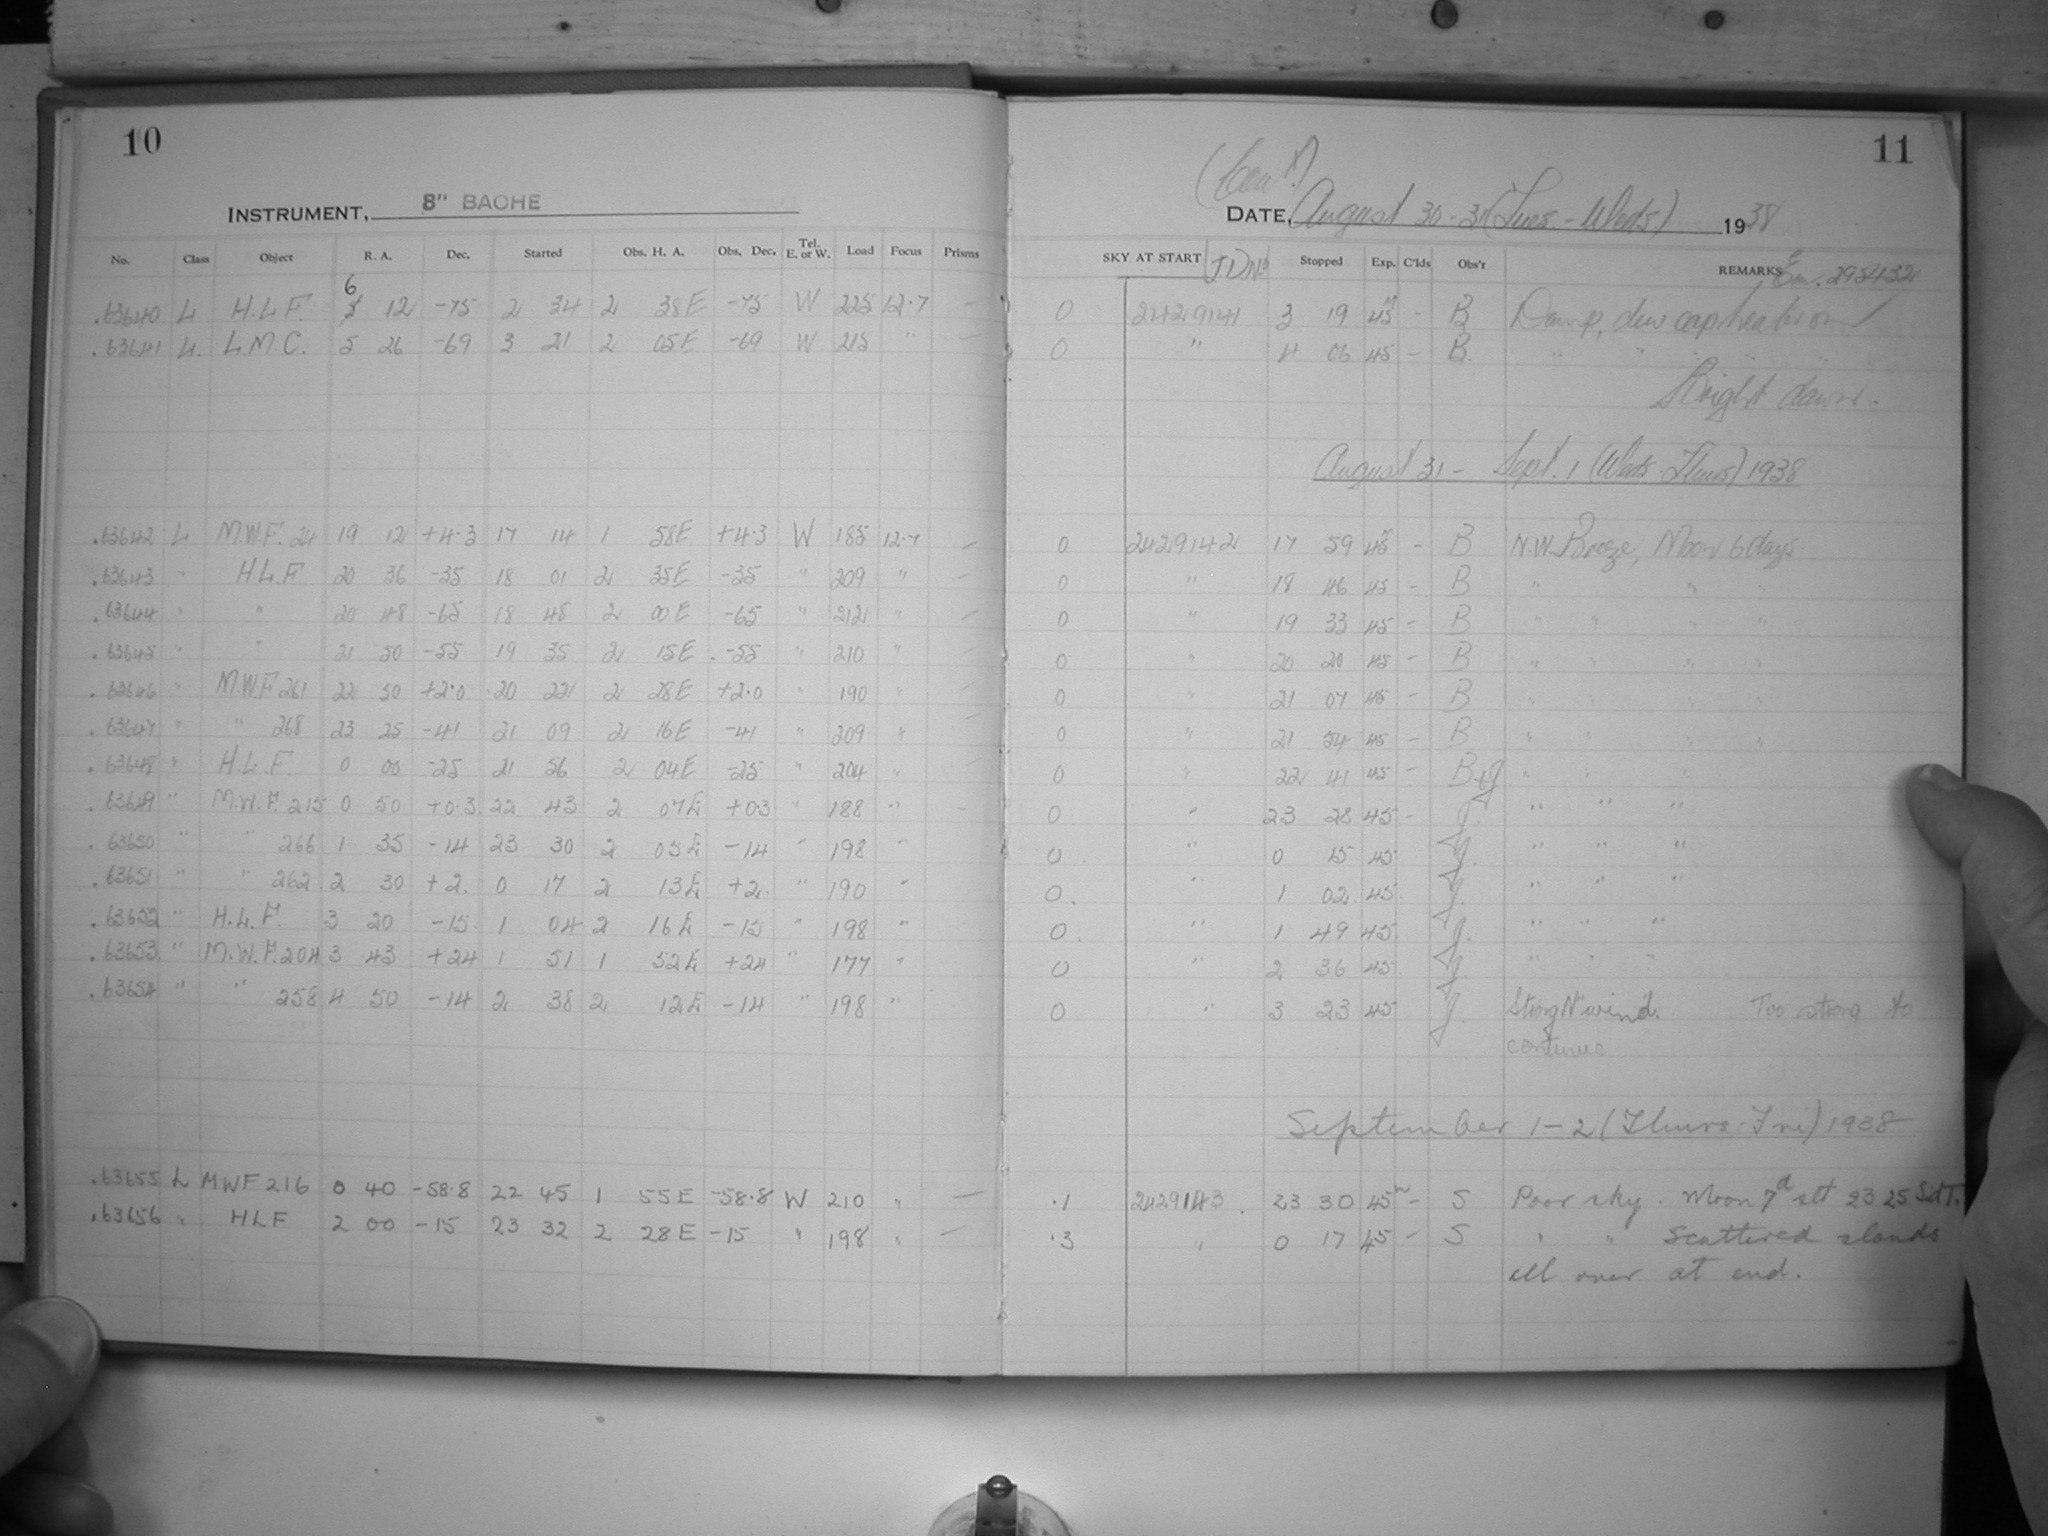 10
INSTRUMENT, 8" BACHE
No. Class Object R. A. Dec. Started Obs. H. A. Obs. Dec. Tel. E. or W. Load Focus Prisms
6
.63640 L H.L.F. 5 12 -75 2 34 2 38E -75 W 225 12.7 -
.63641 L. L.M.C. 5 26 -69 3 21 2 05E -69 W 215 " -
.63642 L M.W.F. 24 19 12 +4.3 17 14 1 58E +4.3 W 185 12.7 -
.63643 " H.L.F 20 36 -35 18 01 2 35E -35 " 209 " -
.63644 " " 20 48 -65 18 48 2 00E -65 " 212 " -
.63645 " " 21 50 -55 19 35 2 15E -55 " 210 " -
.63646 " M.W.F. 261 22 50 +2.0 20 22 2 28E +2.0 " 190 " -
.63647 " " 268 23 25 -41 21 09 2 16E -41 " 209 " -
.63648 " H.L.F. 0 00 -25 21 56 2 04E -25 " 204 " -
.63649 " M.W.F. 215 0 50 +0.3 22 43 2 07E +03 " 188 " -
.63650 " " 266 1 35 -14 23 30 2 05E -14 " 198 "
.63651 " " 262 2 30 +2. 0 17 2 13E +2. " 190 "
.63652 " H.L.F. 3 20 -15 1 04 2 16E -15 " 198 "
.63653 " M.W.F. 204 3 43 +24 1 51 1 52E +24 " 177 "
.63654 " " 258 4 50 -14 2 38 2 12E -14 " 198 "
.63655 L MWF 216 0 40 -58.8 22 45 1 55E -58.8 W 210 " -
.63656 " HLF 2 00 -15 23 32 2 28E -15 " 198 " -
11
(Con't)
DATE, August 30-31 (Tues.-Weds) 1938
SKY AT START J.D.No Stopped Exp. C'lds Obs'r REMARKS 295432
0 2429141 3 19 45m - B Damp, dew cap heater on
0 " 4 06 45 - B. " " " "
Bright dawn.
August 31 - Sept. 1 (Weds-Thurs) 1938
0 2429142 17 59 45m - B N.W. Breeze, Moon 6 days
0 " 18 46 45 - B " " "
0 " 19 33 45 - B " " " "
0 " 20 20 45 - B " " " "
0 " 21 07 45 - B " " " "
0 " 21 54 45 - B " " " "
0 " 22 41 45 - B+J " " "
0 " 23 28 45 - J. " " "
0. " 0 15 45 J. " " "
0. " 1 02 45 J. " " "
0. " 1 49 45 J. " " "
0 " 2 36 45 J. " " "
0 " 3 23 45 J. Strong N wind. Too strong to
continue
September 1-2 (Thurs-Fri) 1938
.1 2429143. 23 30 45m - S Poor sky. Moon 7d set 23 25 Sid T.
.3 " 0 17 45 - S " " Scattered clouds
all over at end.